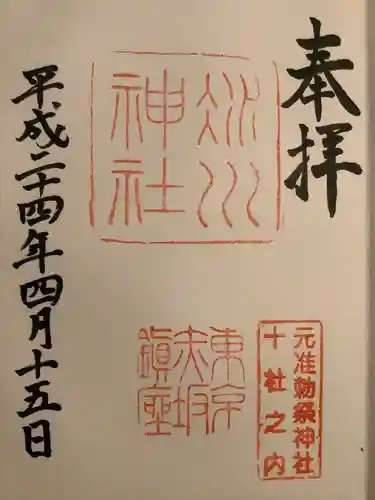 奉拝
氷川
神社
元准勅祭神社
十社之内
東京
赤坂
鎮座
平成二十四年四月十五日